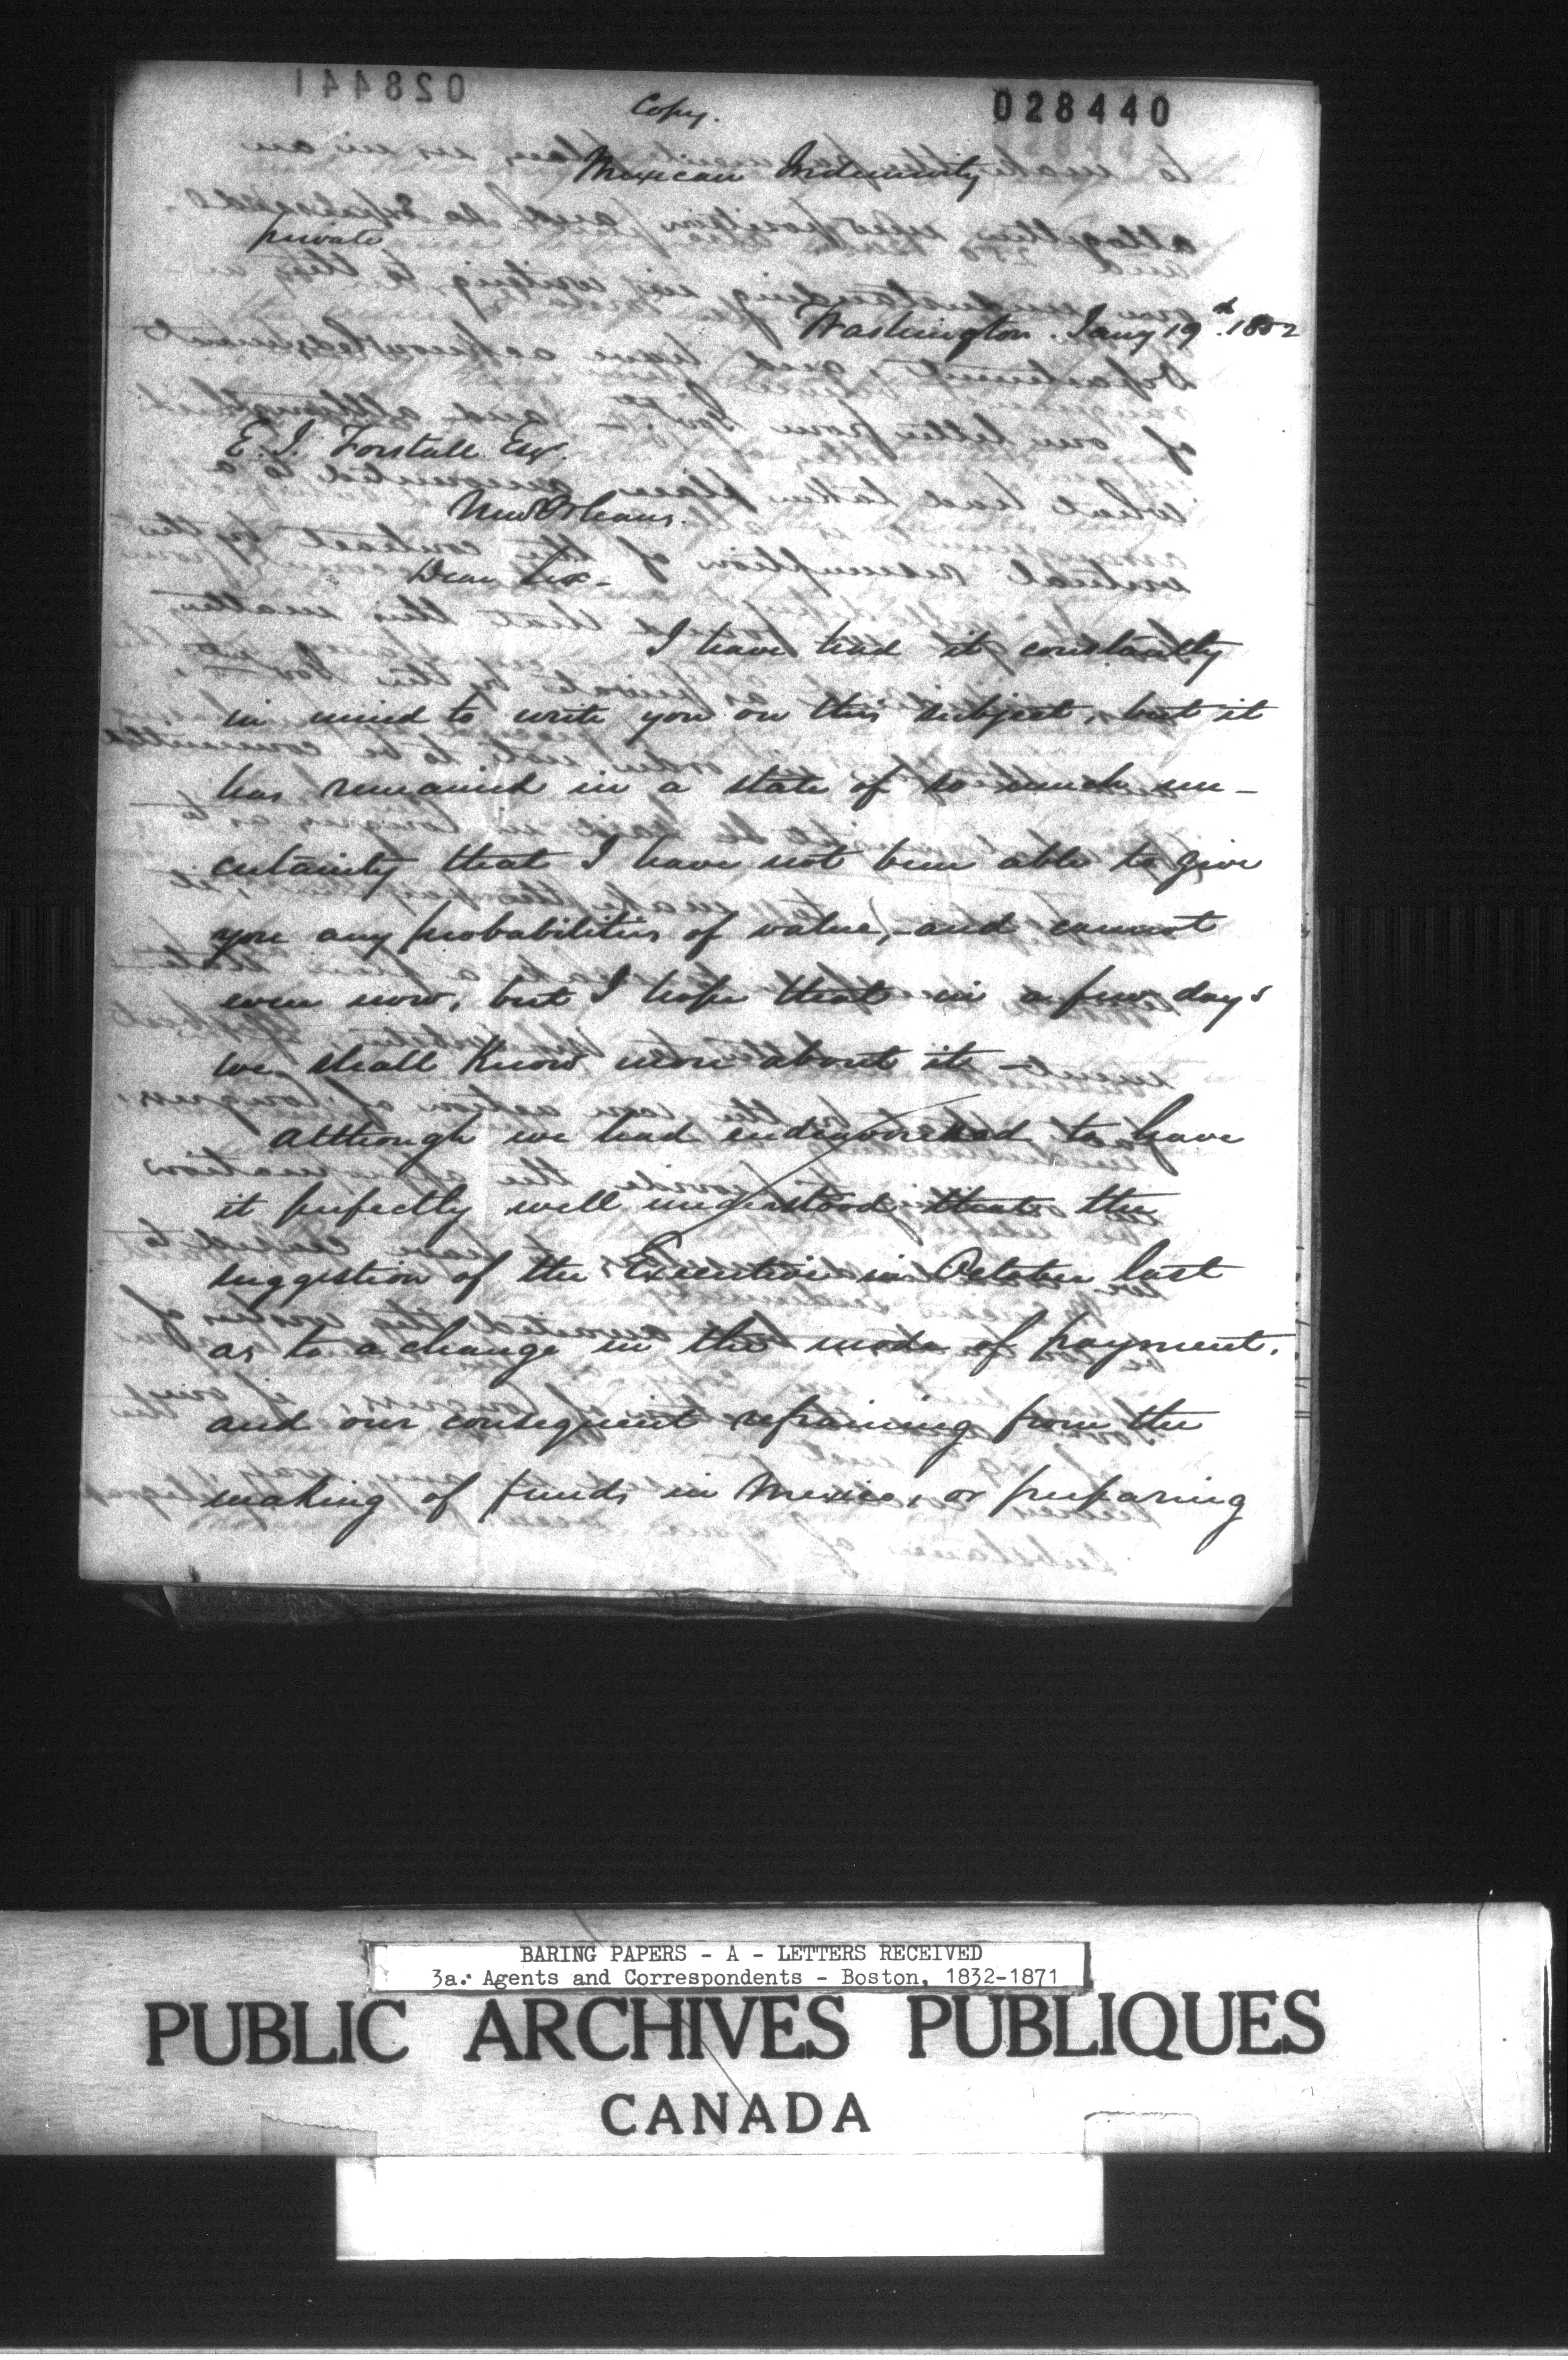 028441
Copy.
028440
Mexican Indemnity
private
Washington. Jany 19th. 1852
E. J. Forstall Esq.
New Orleans.
Dear Sir-
I have had it constantly
in mind to write you on this subject, but it
has remained in a state of so much un-
certainity that I have not been able to give
you any probabilities of value, and cannot
even now, but I hope that in a few days
we shall know more about it-
Although we had endeavoured to have
it perfectly well understood that the
suggestion of the Executive in October last
as to a change in the mode of payment.
and our consequent refraining from the
making of funds in Mexico, or preparing
BARING PAPERS - A - LETTERS RECEIVED
3a. Agents and Correspondents - Boston, 1832-1871
PUBLIC ARCHIVES PUBLIQUES
CANADA